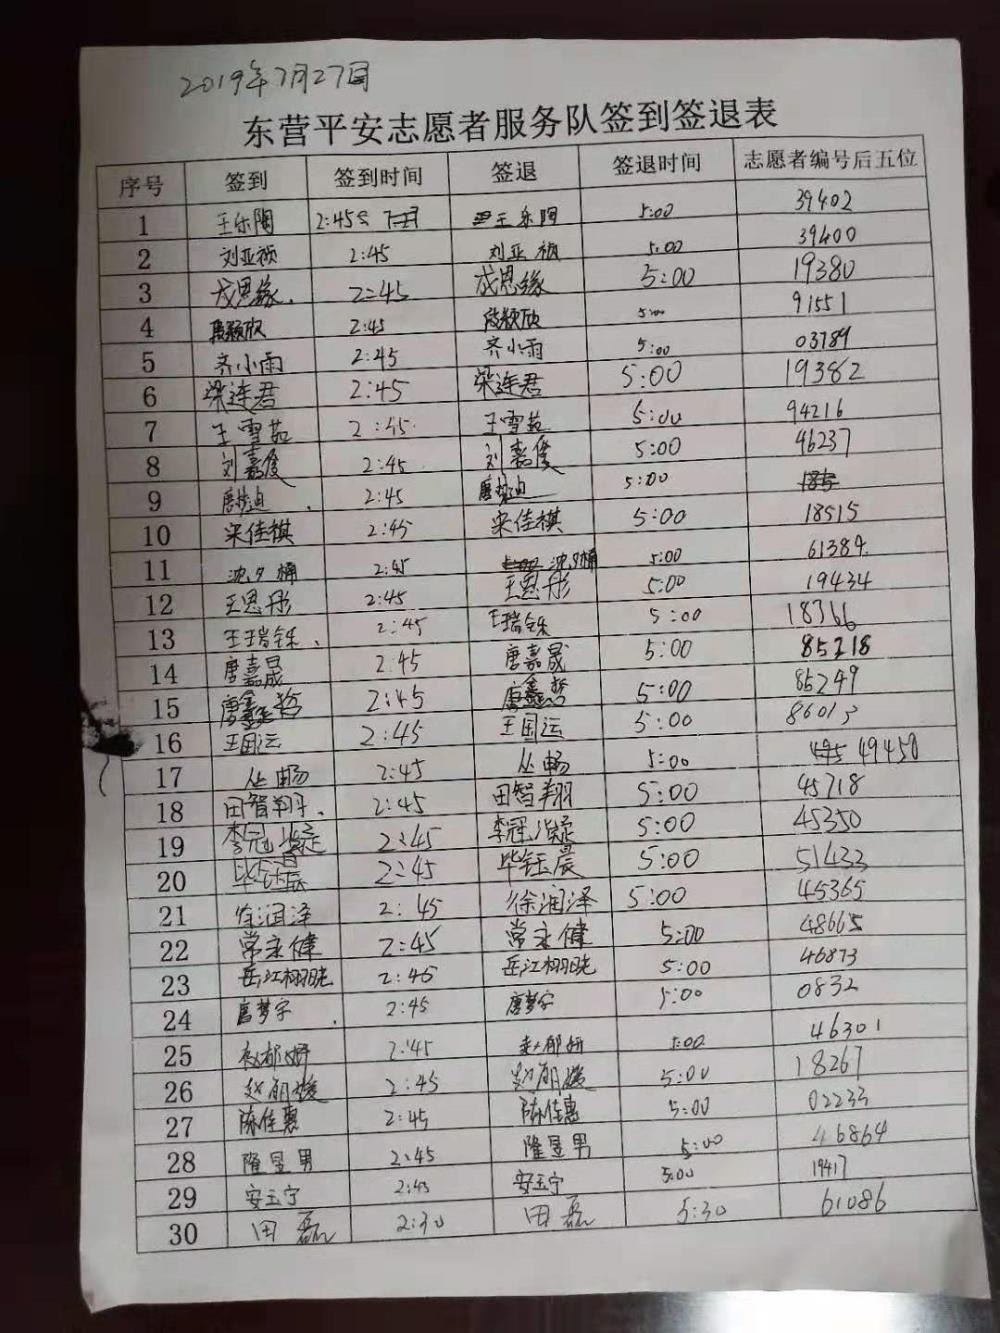 2019年7月27日
东营平安志愿者服务队签到签退表
序号 签到 签到时间 签退 签退时间 志愿者编号后五位
1 王乐陶 2:45 王乐陶 5:00 39402
2 刘亚祯 2:45 刘亚祯 5:00 39400
3 成思缘 2:45 成思缘 5:00 19380
4 段颖欣 2:45 段颖欣 5:00 91551
5 齐小雨 2:45 齐小雨 5:00 03789
6 梁连君 2:45 梁连君 5:00 19362
7 王雪茹 2:45 王雪茹 5:00 94216
8 刘嘉俊 2:45 刘嘉俊 5:00 46237
9 2:45 5:00
10 宋佳祺 2:45 宋佳祺 5:00 18515
11 沈夕楠 2:45 沈夕楠 5:00 61384
12 王思彤 2:45 王思彤 5:00 19434
13 王瑞铄 2:45 王瑞铄 5:00 18366
14 唐嘉晟 2:45 唐嘉晟 5:00 85218
15 唐鑫哲 2:45 唐鑫哲 5:00 85249
16 王国运 2:45 王国运 5:00 86013
17 丛畅 2:45 丛畅 5:00 49450
18 田智翔 2:45 田智翔 5:00 45718
19 李冠凝 2:45 李冠凝 5:00 45350
20 毕钰晨 2:45 毕钰晨 5:00 51433
21 徐润泽 2:45 徐润泽 5:00 45365
22 常永健 2:45 常永健 5:00 48665
23 岳江栩晓 2:46 岳江栩晓 5:00 46873
24 唐梦宇 2:45 唐梦宇 5:00 0832
25 赵郁妍 2:45 赵郁妍 5:00 46301
26 2:45 5:00 18267
27 陈佳惠 2:45 陈佳惠 5:00 02233
28 隆昱男 2:45 隆昱男 5:00 46864
29 安玉宁 2:45 安玉宁 5:00 19417
30 田磊 2:30 田磊 5:30 61086